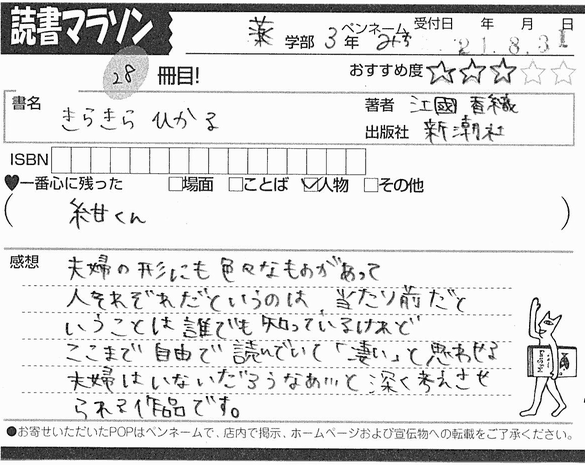 読書マラソン
薬 学部 3年 ペンネーム みち 受付日 年 月 日
21.8.31
28 冊目!
おすすめ度 ★★★☆☆
書名 きらきらひかる
著者 江國香織
出版社 新潮社
ISBN
♥一番心に残った □場面 □ことば ☑人物 □その他
( 紺くん )
感想 夫婦の形にも色々なものがあって
人それぞれだというのは 当たり前だと
いうことは誰でも知っているけれど
ここまで自由で読んでいて「凄い」と思わせる
夫婦はいないだろうなあ…と深く考えさせ
られる作品です。
●お寄せいただいたPOPはペンネームで、店内で掲示、ホームページおよび宣伝物への転載をご了承ください。